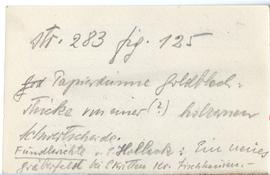 str. 283 fig. 125
Papierdünne Goldblech-
stücke von einer (?) hölzernen
Schwertscheide.
Fundberichte v. E. Hollack: Ein neues
Gräberfeld bei Kr. Fischhausen.—